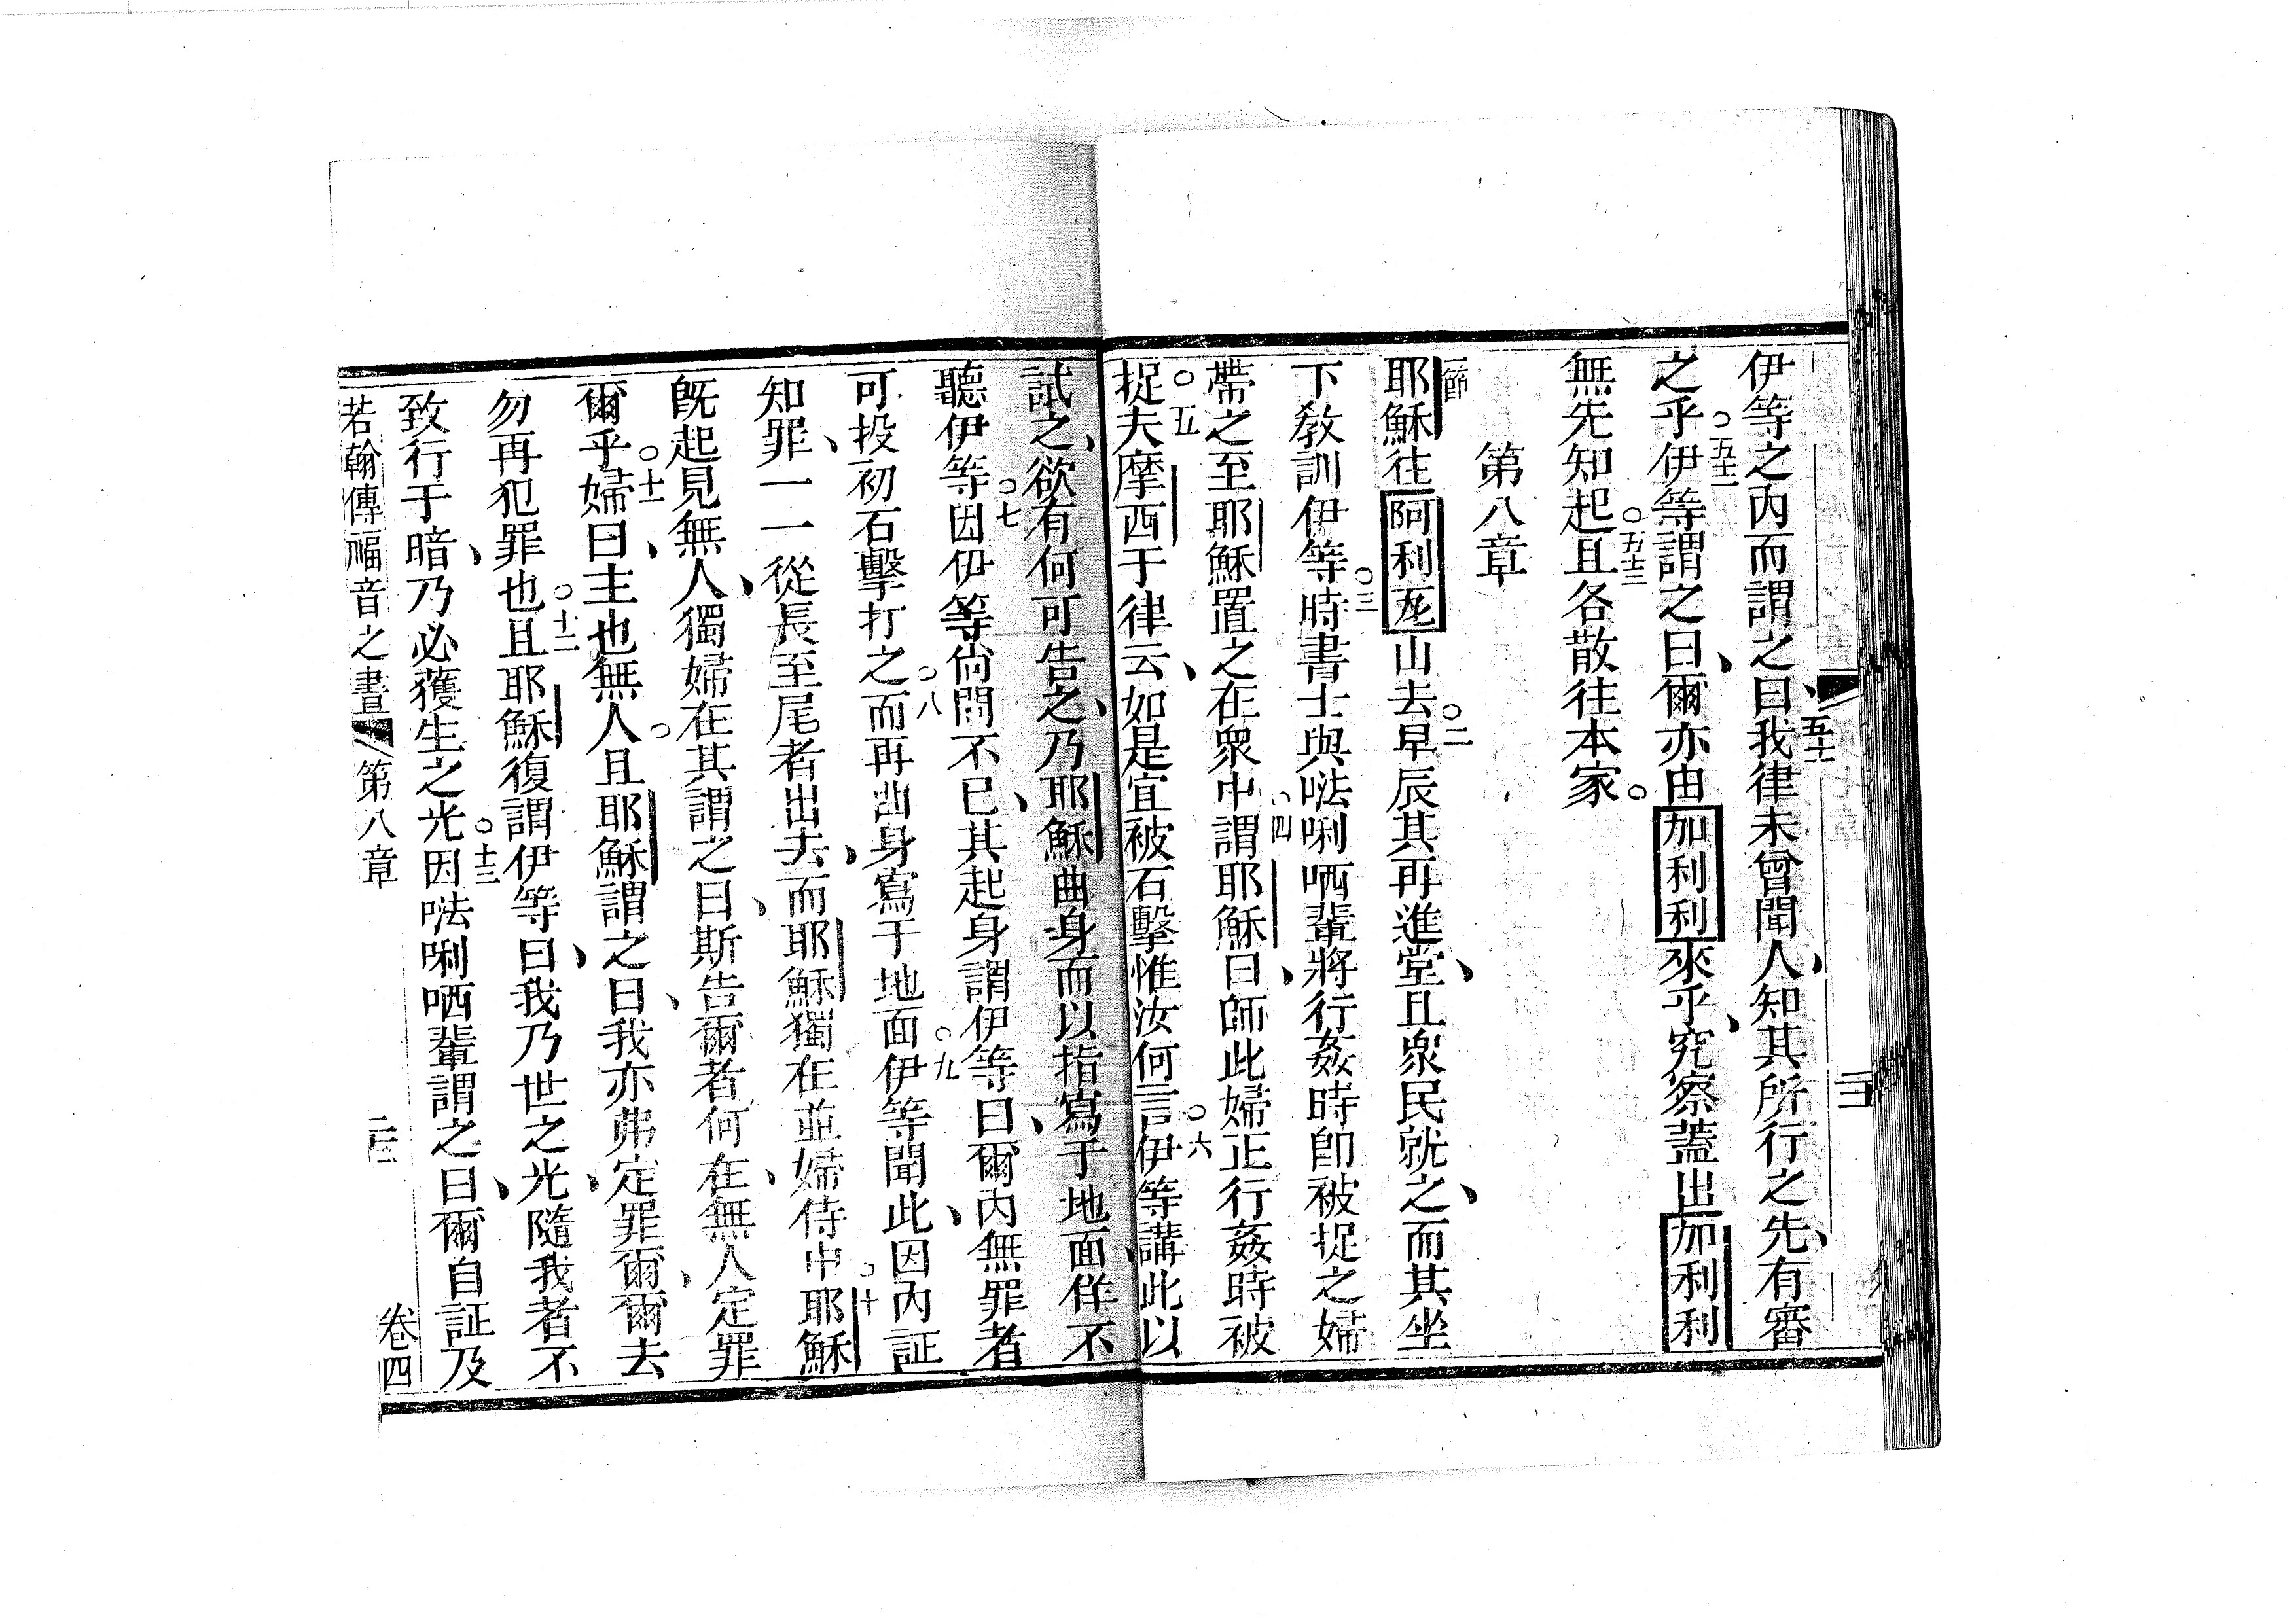 伊等之內而謂之曰、我律未曾聞人、知其所行之先、有審
五十一
之乎○五十二伊等謂之曰、爾亦由加利利來乎、究察蓋出加利利
無先知起○五十三且各散往本家○
第八章
一節
耶穌往阿利瓦山去○二早辰其再進堂、且眾民就之、而其坐
下教訓伊等○三時書士與𠵽唎哂輩將行姦時即被捉之婦
帶之至耶穌置之在眾中○四謂耶穌曰、師此婦正行姦時被
捉○五夫摩西于律云、如是宜被石擊惟汝何言○六伊等講此以
試之、欲有何可告之、乃耶穌曲身而以指寫于地面、佯不
聽伊等○七因伊等尚問不已、其起身謂伊等曰、爾內無罪者
可投初石擊打之○八而再曲身寫于地面○九伊等聞此、因內証
知罪、一一從長至尾者出去、而耶穌獨在並婦侍中○十耶穌
既起見無人、獨婦在其謂之曰、斯告爾者何在、無人定罪
爾乎○十一婦曰、主也無人○且耶穌謂之曰、我亦弗定罪爾、爾去
勿再犯罪也○十二且耶穌復謂伊等曰、我乃世之光、隨我者不
致行于暗、乃必獲生之光○十三因𠵽唎哂輩謂之曰、爾自証及
若翰傳福音之書 第八章 卷四